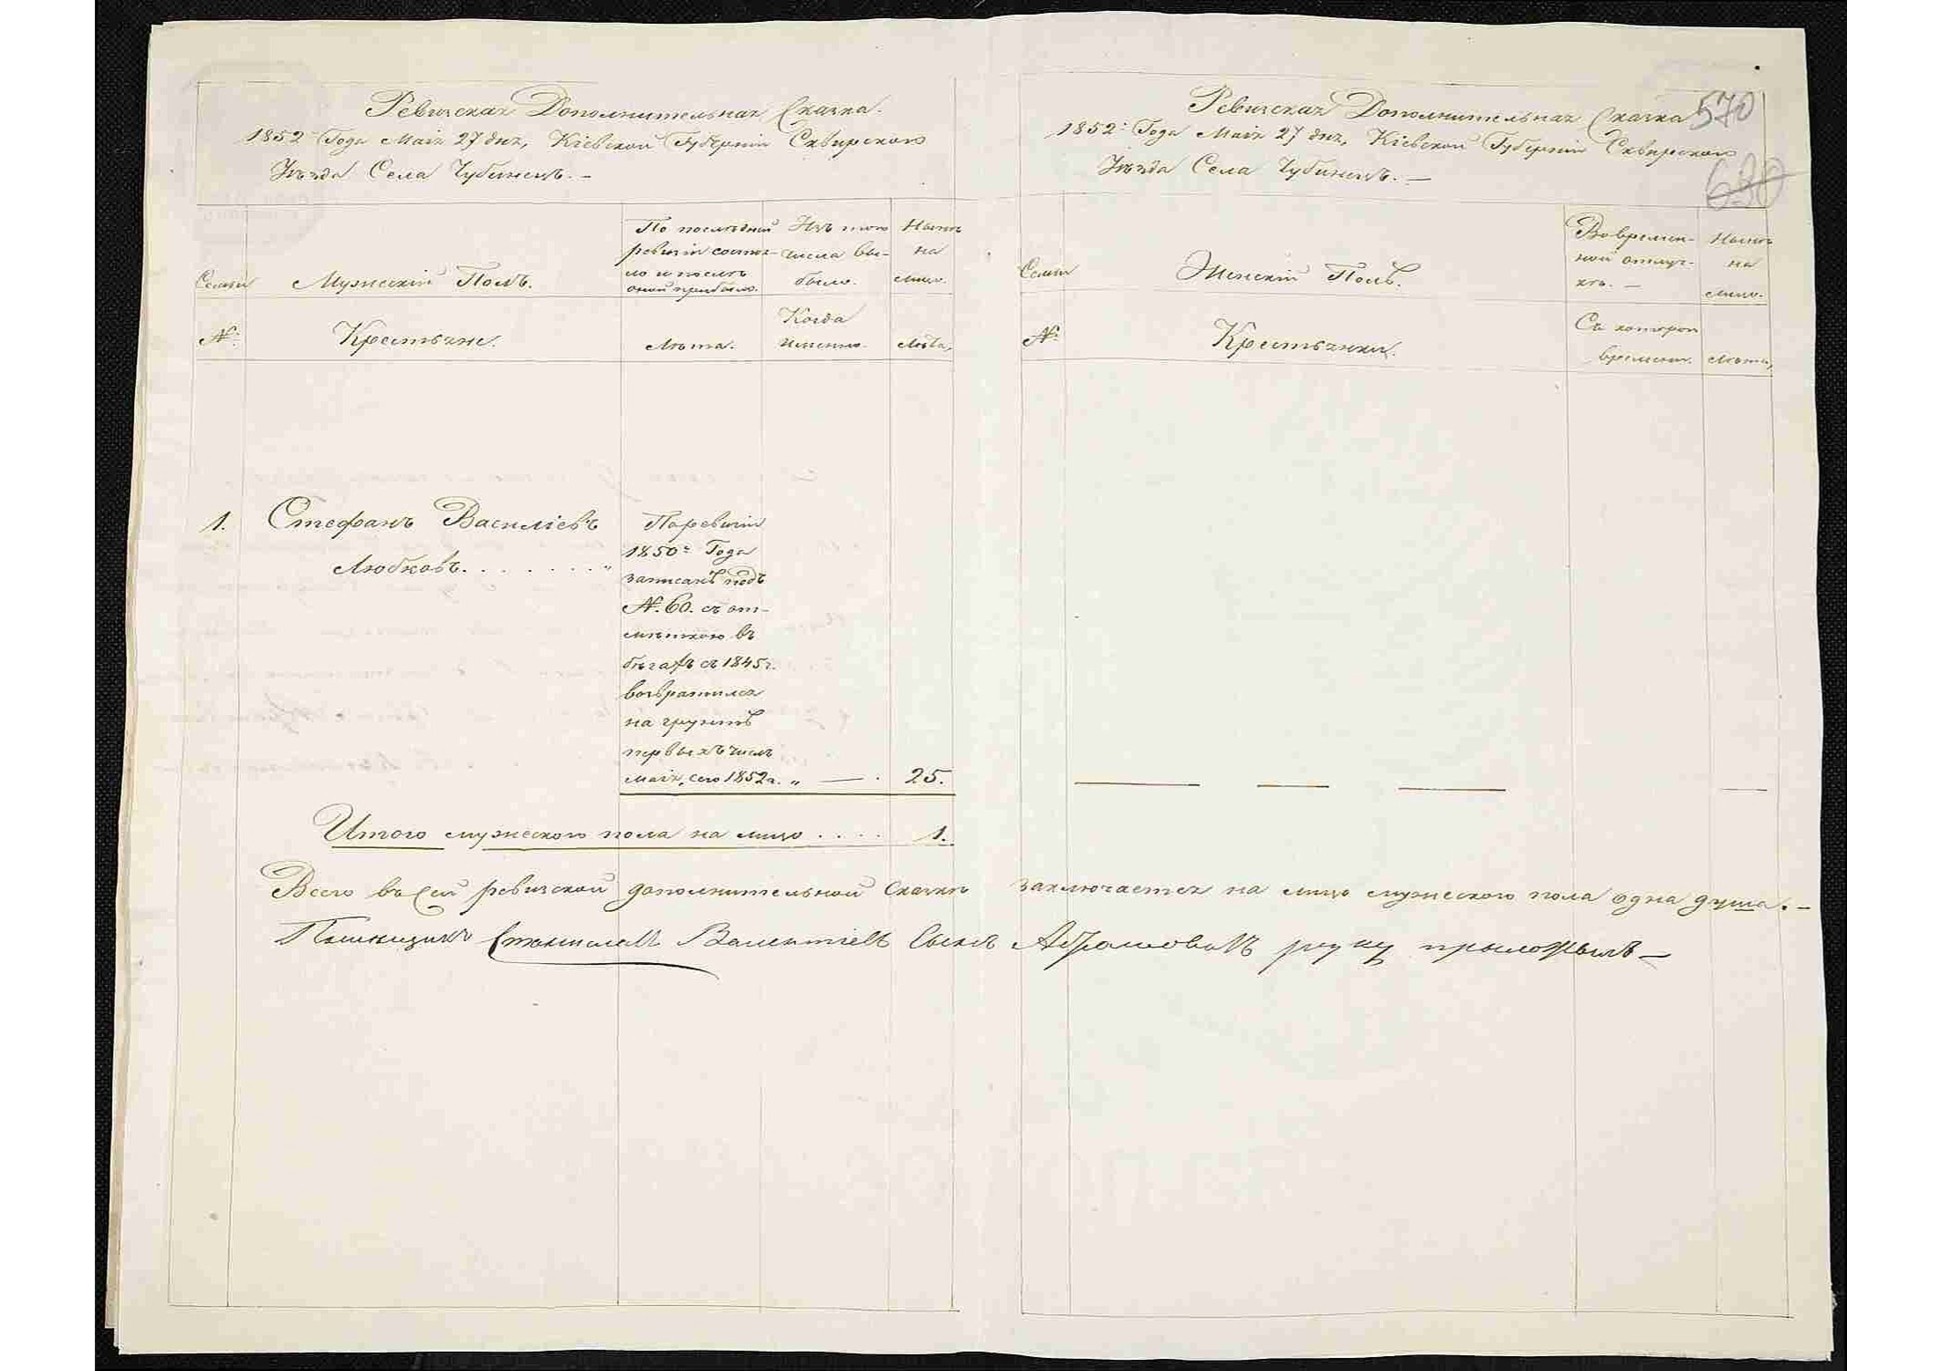 Ревизская Дополнительная Сказка.
1852 Года Маія 27 дня, Кіевской Губерніи Сквирского
Уѣзда Села Чубинецъ. –
Семьи
Мужескій Полъ.
По послѣдней
ревизіи состоя-
ло и послѣ
оной прибыло.
Изъ того
числа вы-
было.
Нынѣ
на
лицо.
№
Крестьяне.
Лѣта.
Когда
именно.
Лѣта,
1.
Стефанъ Василіевъ
Любковъ. . . . . . . . „
По ревизіи
1850 Года
записанъ подъ
№. 60. съ от-
мѣткою въ
бѣгахъ съ 1845 г.
возвратился
на грунтъ
первыхъ числъ
Маія, сего 1852 г. „ — . 25.
Итого мужеского пола на лицо . . . . 1.
Ревизская Дополнительная Сказка
570
1852: Года Маія 27 дня, Кіевской Губерніи Сквирского
Уѣзда Села Чубинецъ. —
630
Семьи
Женскій Полъ.
Во времен-
ной отлуч-
кѣ. —
Нынѣ
на
лицо.
№
Крестьянки.
Съ котораго
времени.
Лѣта,
Всего въ сей ревизской дополнительной сказкѣ заключается на лицо мужеского пола одна душа. –
Помѣщикъ Станиславъ Валентіевъ Сынъ Абрамовичъ руку приложылъ –